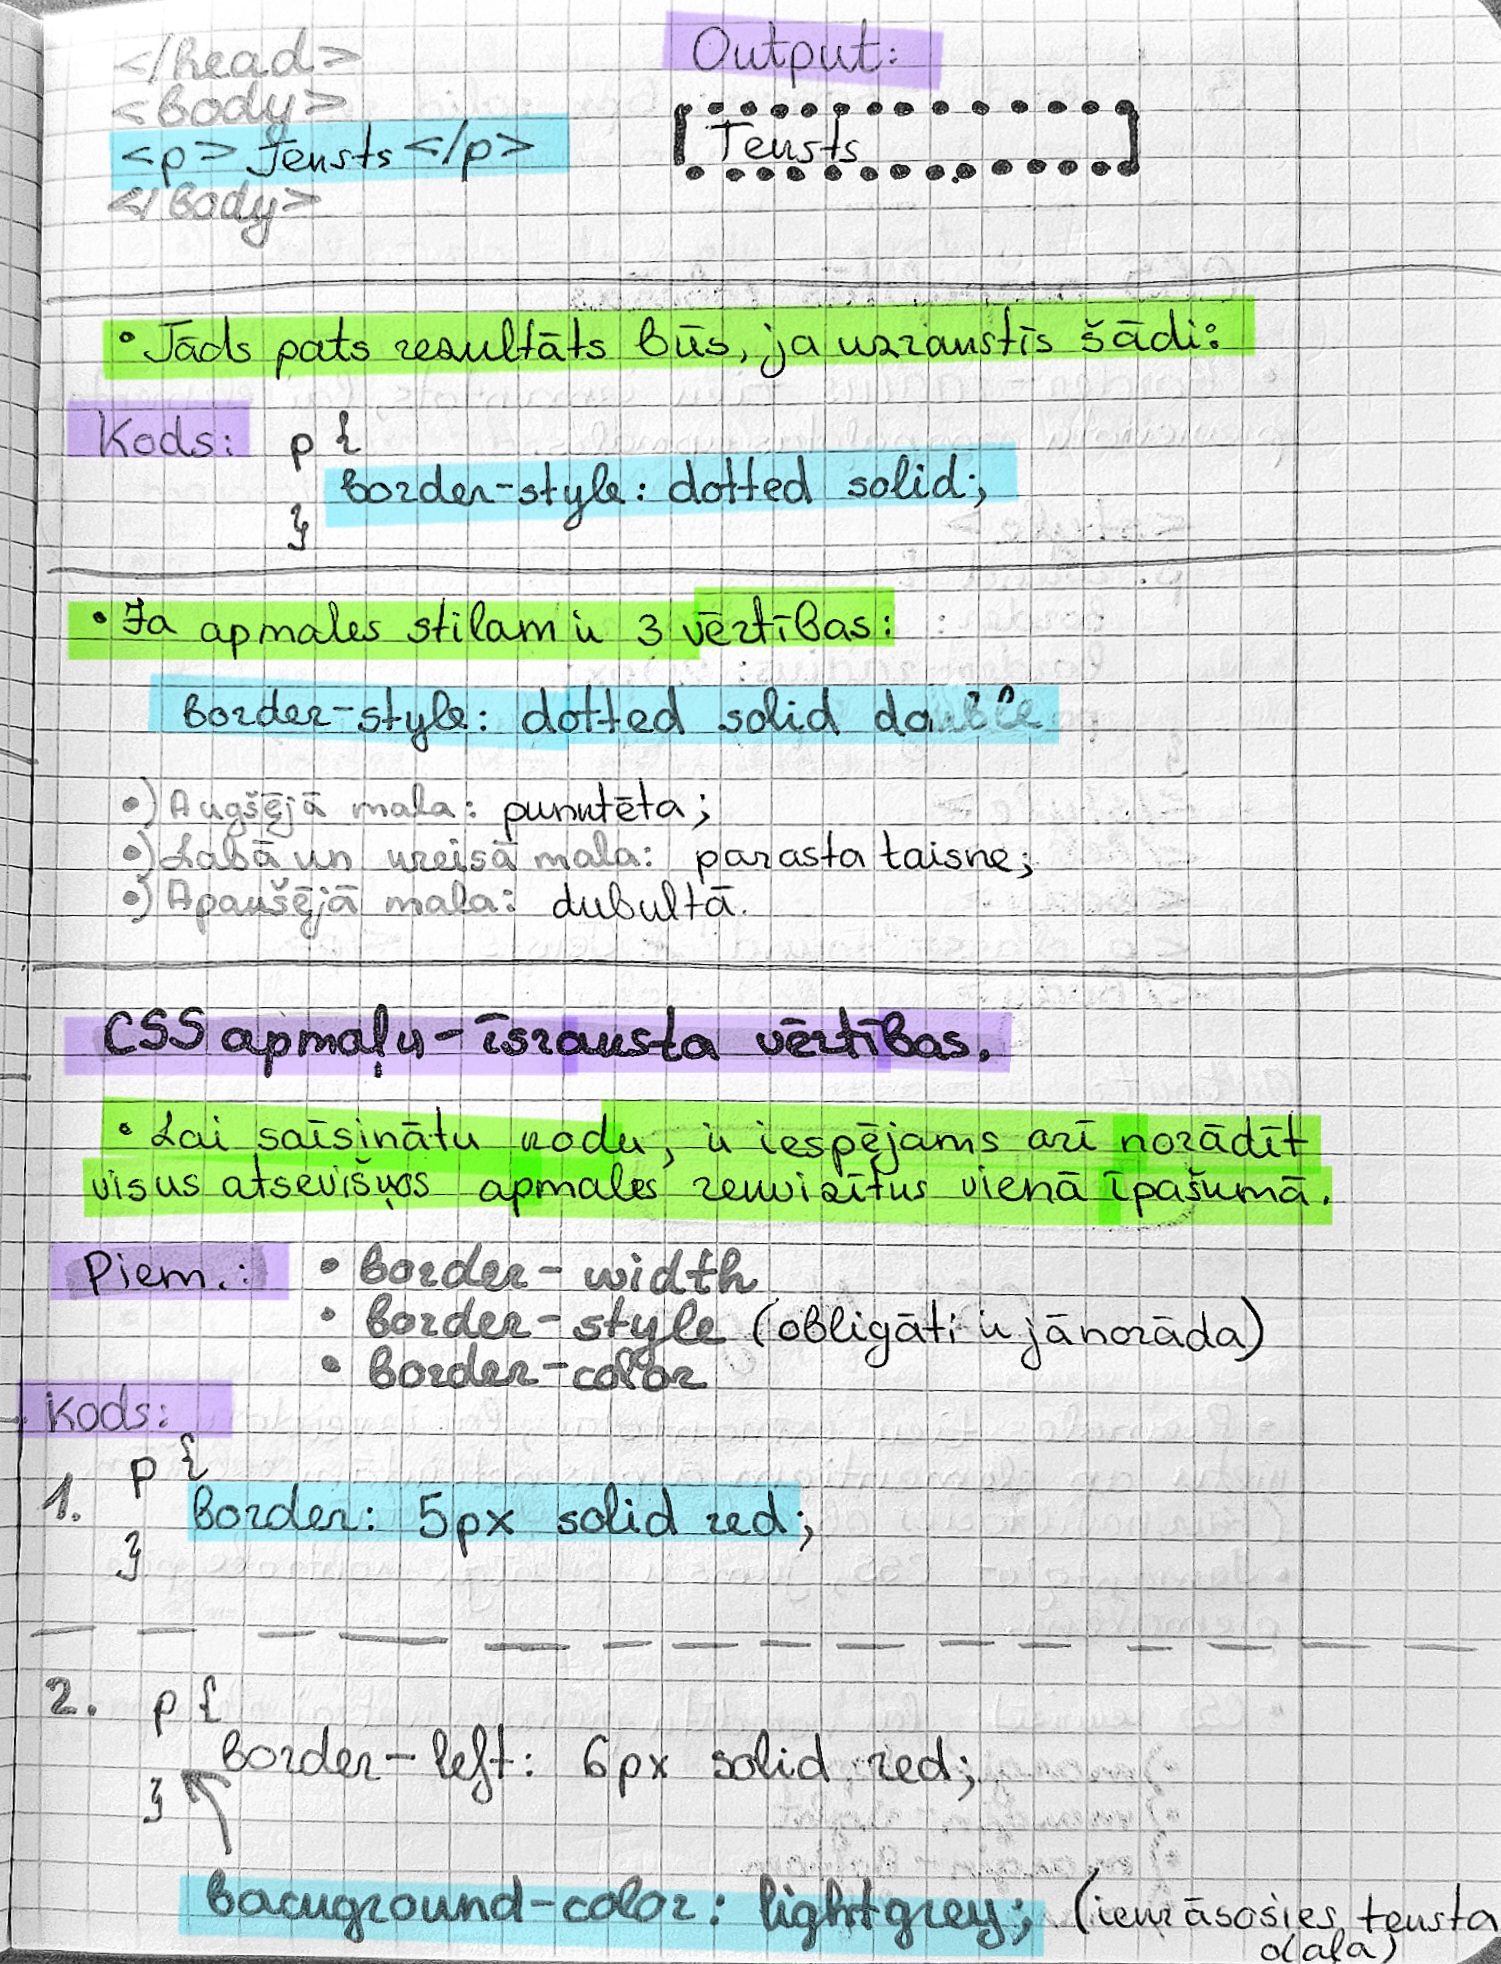 </head>
<body>
<p> Teksts </p>
</body>
Output:
Teksts
• Tāds pats rezultāts būs, ja uzrakstīs šādi:
Kods: p {
border-style: dotted solid;
}
• Ja apmales stilam ir 3 vērtības:
border-style: dotted solid double
•) Augšējā mala: punktēta;
•) Labā un kreisā mala: parasta taisne;
•) Apakšējā mala: dubultā.
CSS apmaļu - īsraksta vērtības.
• Lai saīsinātu kodu, ir iespējams arī norādīt
visus atsevišķos apmales rekvizītus vienā īpašumā.
Piem.: • border-width
• border-style (obligāti ir jānorāda)
• border-color
Kods:
1. p {
border: 5px solid red;
}
2. p {
border-left: 6px solid red;
}
background-color: lightgrey; (iekrāsosies teksta
daļa)